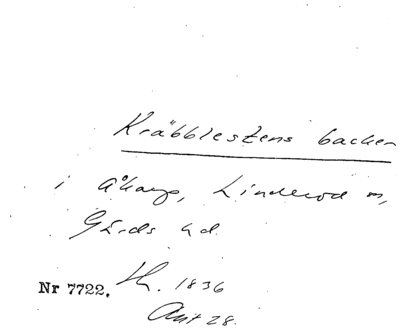 Kräbblestens backen
i Åkarp, Linderöd sn,
Gärds hd.
Nr 7722. Lh. 1836
Akt 28.